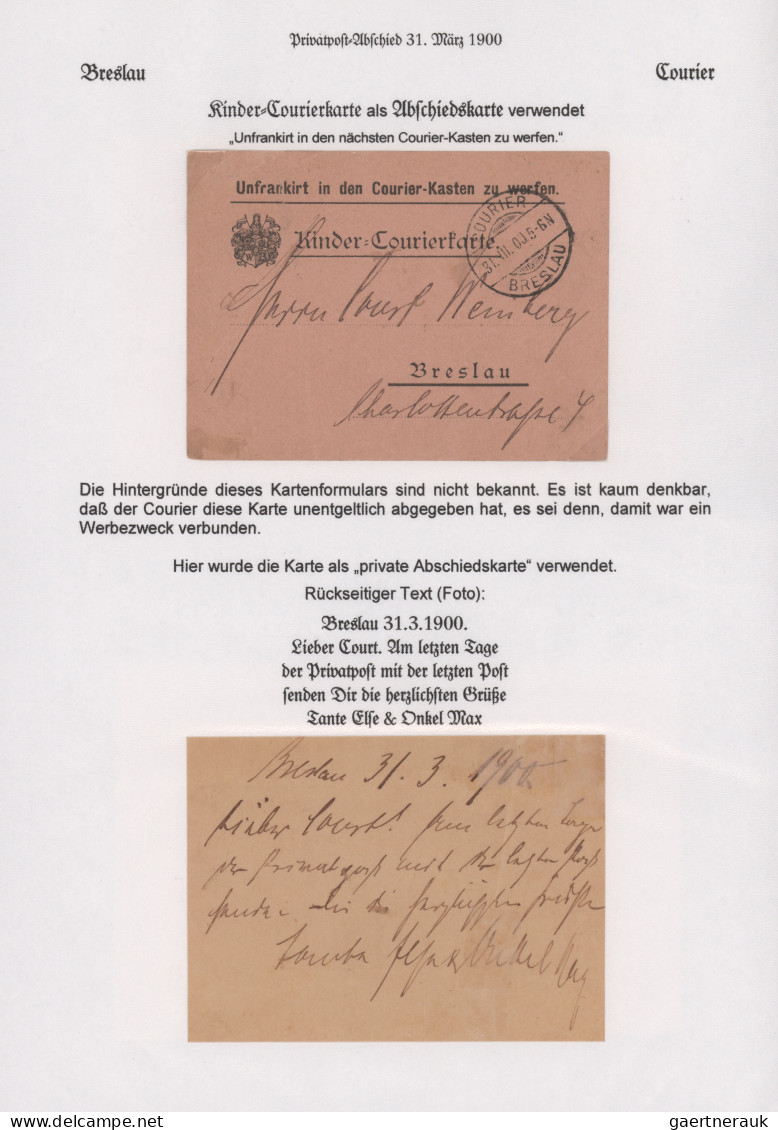 Privatpost-Abschied 31. März 1900
Breslau Courier
Kinder-Courierkarte als Abschiedskarte verwendet
„Unfrankirt in den nächsten Courier-Kasten zu werfen.“
Unfrankirt in den Courier-Kasten zu werfen.
Kinder-Courierkarte.
COURIER
31.III.00.5-6N
BRESLAU
Herrn Court Nemberg
Breslau
Charlottenstraße 4
Die Hintergründe dieses Kartenformulars sind nicht bekannt. Es ist kaum denkbar,
daß der Courier diese Karte unentgeltlich abgegeben hat, es sei denn, damit war ein
Werbezweck verbunden.
Hier wurde die Karte als „private Abschiedskarte“ verwendet.
Rückseitiger Text (Foto):
Breslau 31.3.1900.
Lieber Court. Am letzten Tage
der Privatpost mit der letzten Post
senden Dir die herzlichsten Grüße
Tante Else & Onkel Max
Breslau 31. 3. 1900
Lieber Court! Am letzten Tage
der Privatpost mit der letzten Post
senden Dir die herzlichsten Grüße
Tante Else & Onkel Max
gaertnerauk